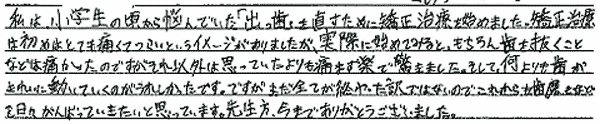 私は、小学生の頃から悩んでいた「出っ歯」を直すために矯正治療を始めました。矯正治療
は初めはとても痛くてつらいというイメージがありましたが、実際に始めてみると、もちろん歯を抜くこと
などは痛かったのですがそれ以外は思っていたよりも痛みも楽で驚きました。そして、何よりも歯が
きれいに動いていくのがうれしかったです。ですがまだ全てが終わった訳ではないのでこれからも歯磨きなど
を日々がんばっていきたいと思っています。先生方、今までありがとうございました。